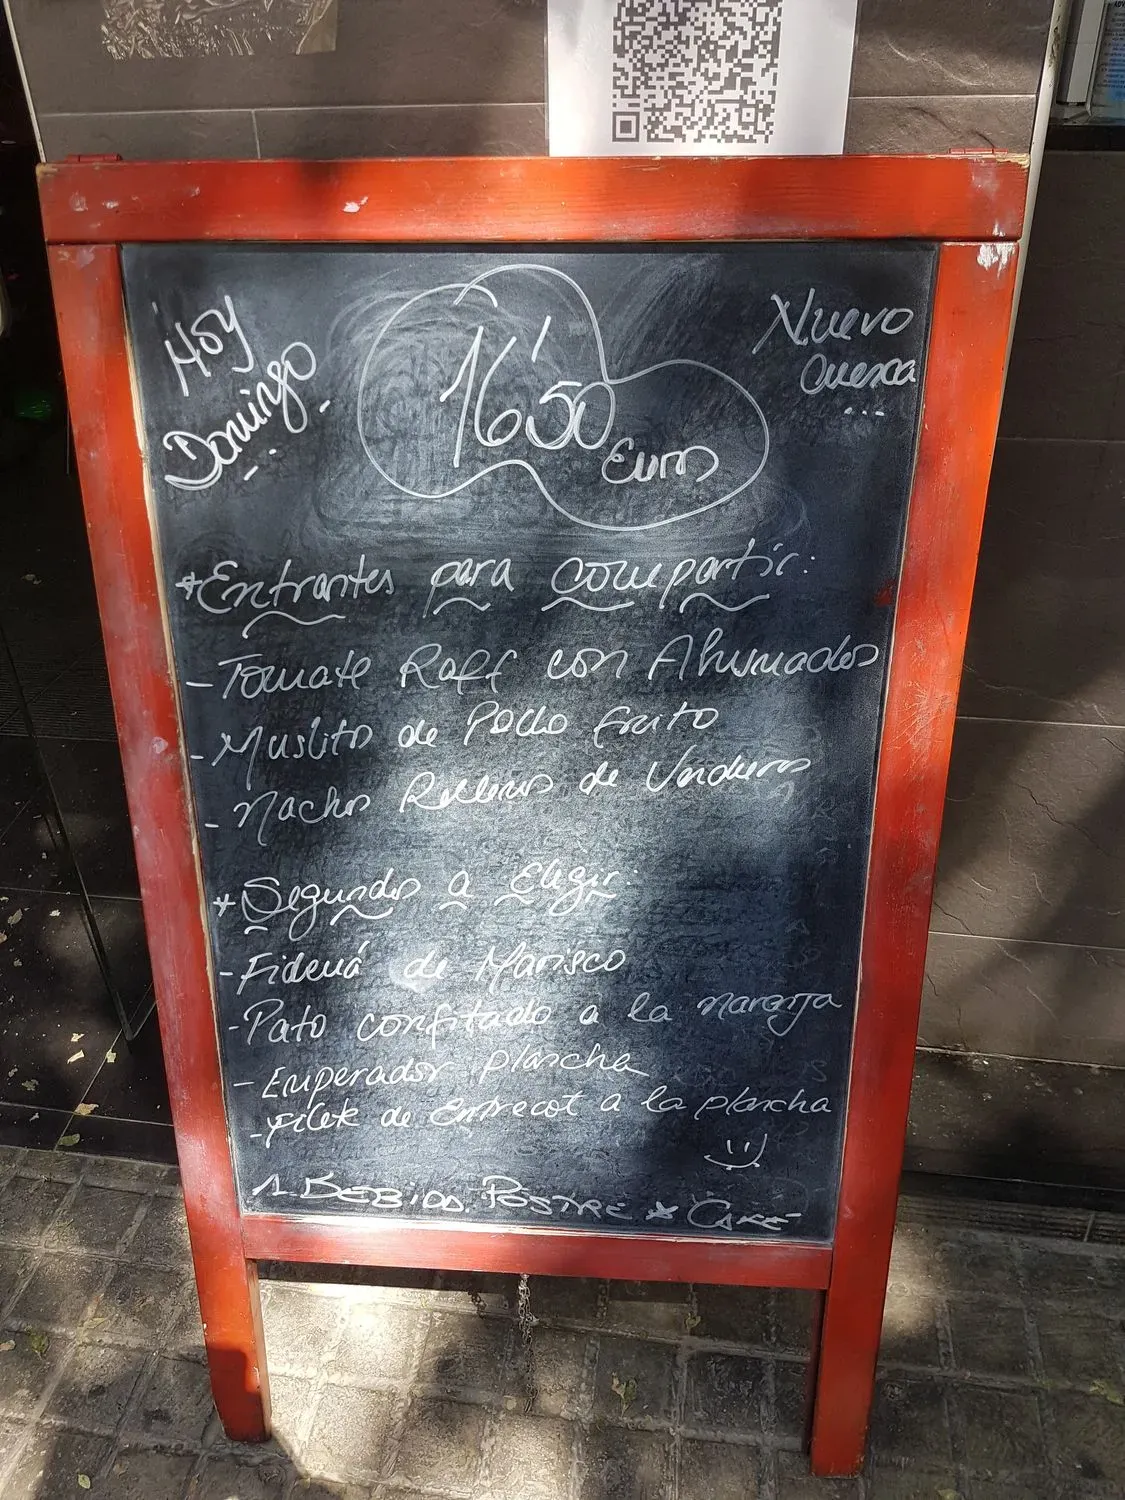 Hoy
Domingo.
16'50
Euros
Nuevo
Cuenca
...
*Entrantes para compartir:
- Tomate Raff con Ahumados
- Muslito de Pollo frito
- Nachos Rellenos de Verduras
* Segundos a Eligir:
- Fideuá de Marisco
- Pato confitado a la naranja
- Emperador plancha
- Filete de Entrecot a la plancha
1. BEBIDA. POSTRE * CAFÉ